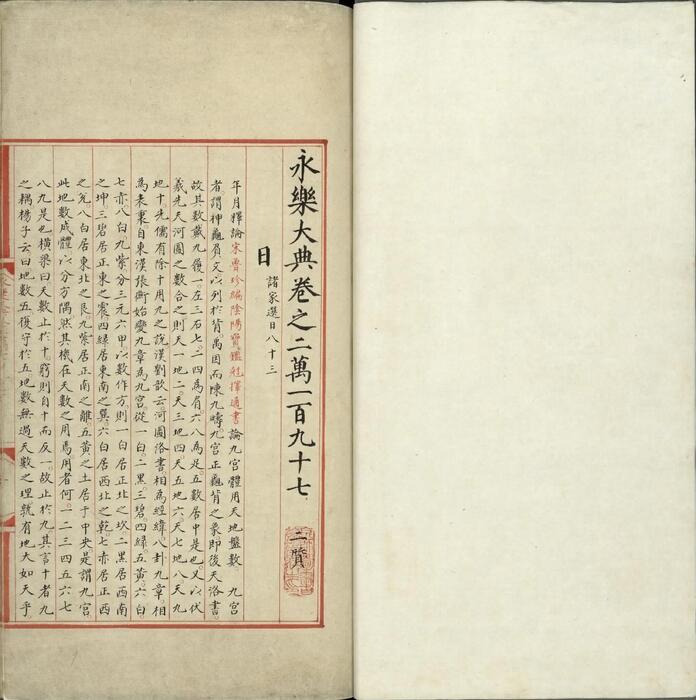 永樂大典卷之二萬一百九十七
二質
日
諸家選日八十三
年月釋論宋魯珍編陰陽寶鑑尅擇通書論九宫體用天地盤數 九宫
者謂神龜負文以列於背禹因而陳九疇九宫正龜背之象即後天洛書
故其數戴九履一左三右七二四為肩六八為足五數居中是也又以伏
羲先天河圖之數合之則天一地二天三地四天五地六天七地八天九
地十先儒有除十用九之說漢劉歆云河圖洛書相為經緯八卦九章相
為表裏自東漢張衡始變九章為九宫從一白二黑三碧四綠五黄六白
七赤八白九紫分三元六甲以數作方則一白居正北之坎二黑居西南
之坤三碧居正東之震四綠居東南之巽六白居西北之乾七赤居正西
之兊八白居東北之艮九紫居正南之離五黄之土居于中央是謂九宫
此地數成體以分方隅然其機在天數之用焉用者何一二三四五六七
八九是也横梁曰天數止於十窮則自十而反一故止於九其言十者九
之耦楊子云曰地數五復守於五地數無過天數之理孰有地大如天乎